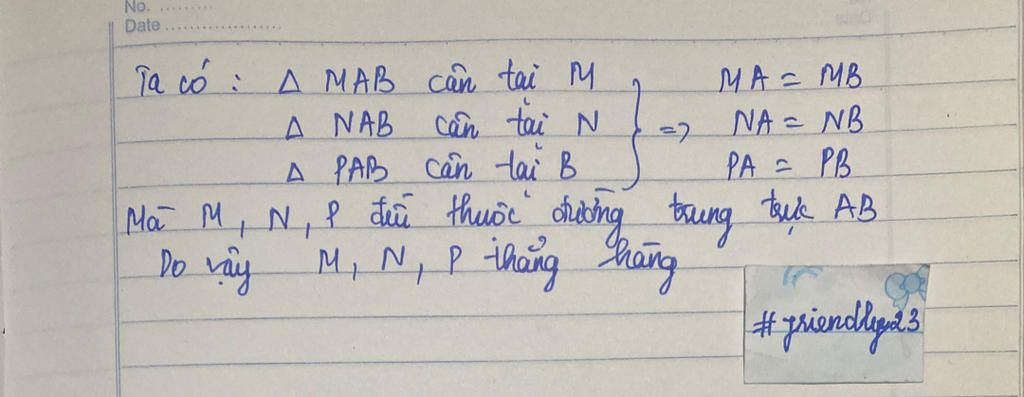 No. ..........
Date ....................
Ta có : Δ MAB cân tại M
Δ NAB cân tại N
Δ PAB cân tại B
} => MA = MB
NA = NB
PA = PB
Mà M, N, P đều thuộc đường trung trực AB
Do vậy M, N, P thẳng hàng
#friendly23